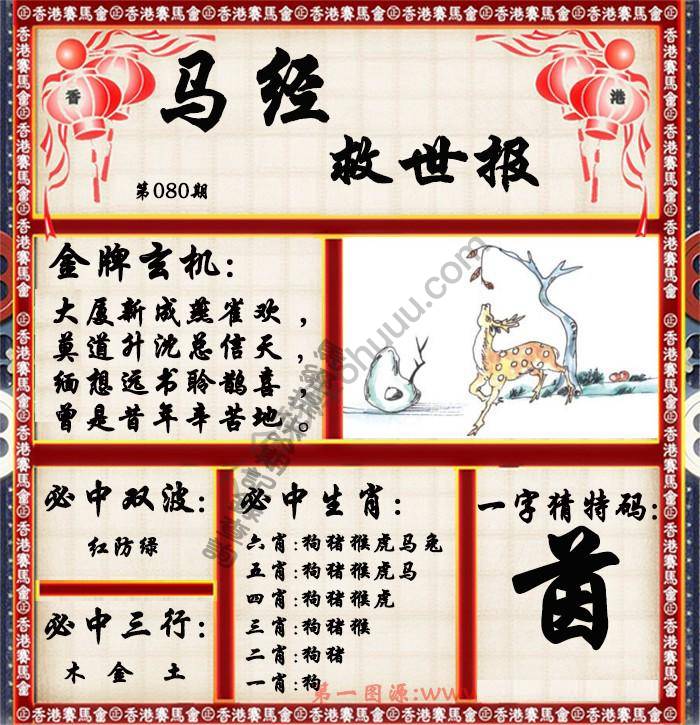 香港賽馬會
香
港
马经
救世报
第080期
金牌玄机：
大厦新成燕雀欢，
莫道升沈总信天，
缅想远书聆鹊喜，
曾是昔年辛苦地。
必中双波：
红防绿
必中三行：
木 金 土
必中生肖：
六肖:狗猪猴虎马兔
五肖:狗猪猴虎马
四肖:狗猪猴虎
三肖:狗猪猴
二肖:狗猪
一肖:狗
一字猜特码：
茵
第一图源:www